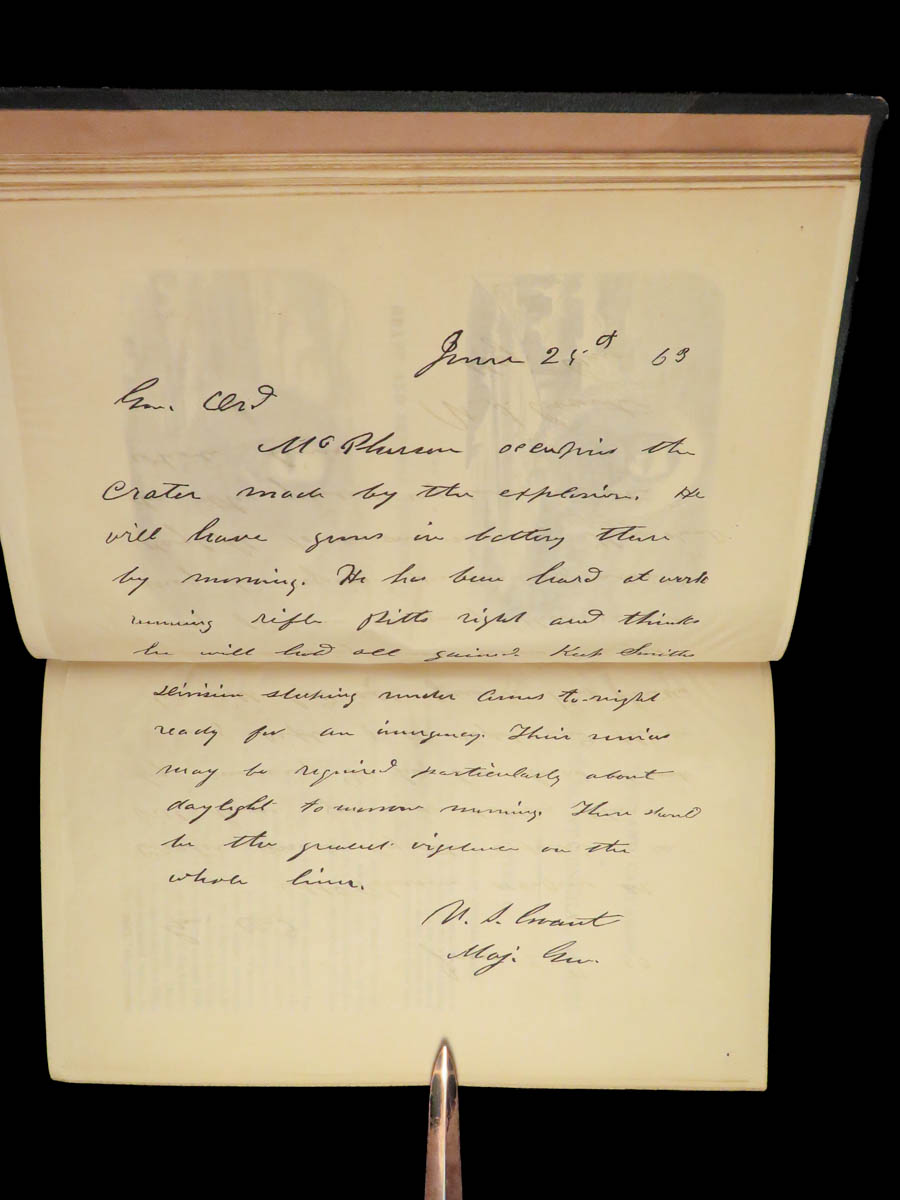 June 25th 63
Gen. Ord
McPherson occupies the
crater made by the explosion. He
will have guns in battery there
by morning. He has been hard at work
running rifle pitts right and thinks
he will hold all gained. Keep Smiths
Division sleeping under arms to-night
ready for an emergency. Their services
may be required particularly about
daylight to morrow morning. There should
be the greatest vigilence on the
whole line.
U. S. Grant
Maj. Gen.